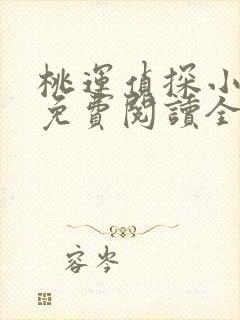 桃運偵探小
免費閱讀全
容岑